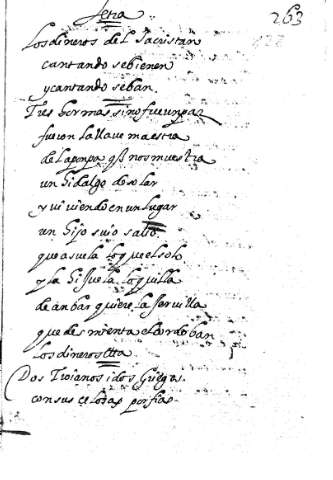 letra
263
Los dineros del sacristan
cantando se bienen
y cantando se ban.
Tres hormas, si no fue un par
fueron la llave maestra
de la ponpa q̃ nos muestra
un hidalgo de solar
y viviendo en un lugar
un hijo suio salto
que asuela lo que el solo
y la hijuela loquilla
de anbar quiere la servilla
que desmienta el cordoban
los dineros etta
Dos Troianos i dos Griegos
con sus celosas porfias